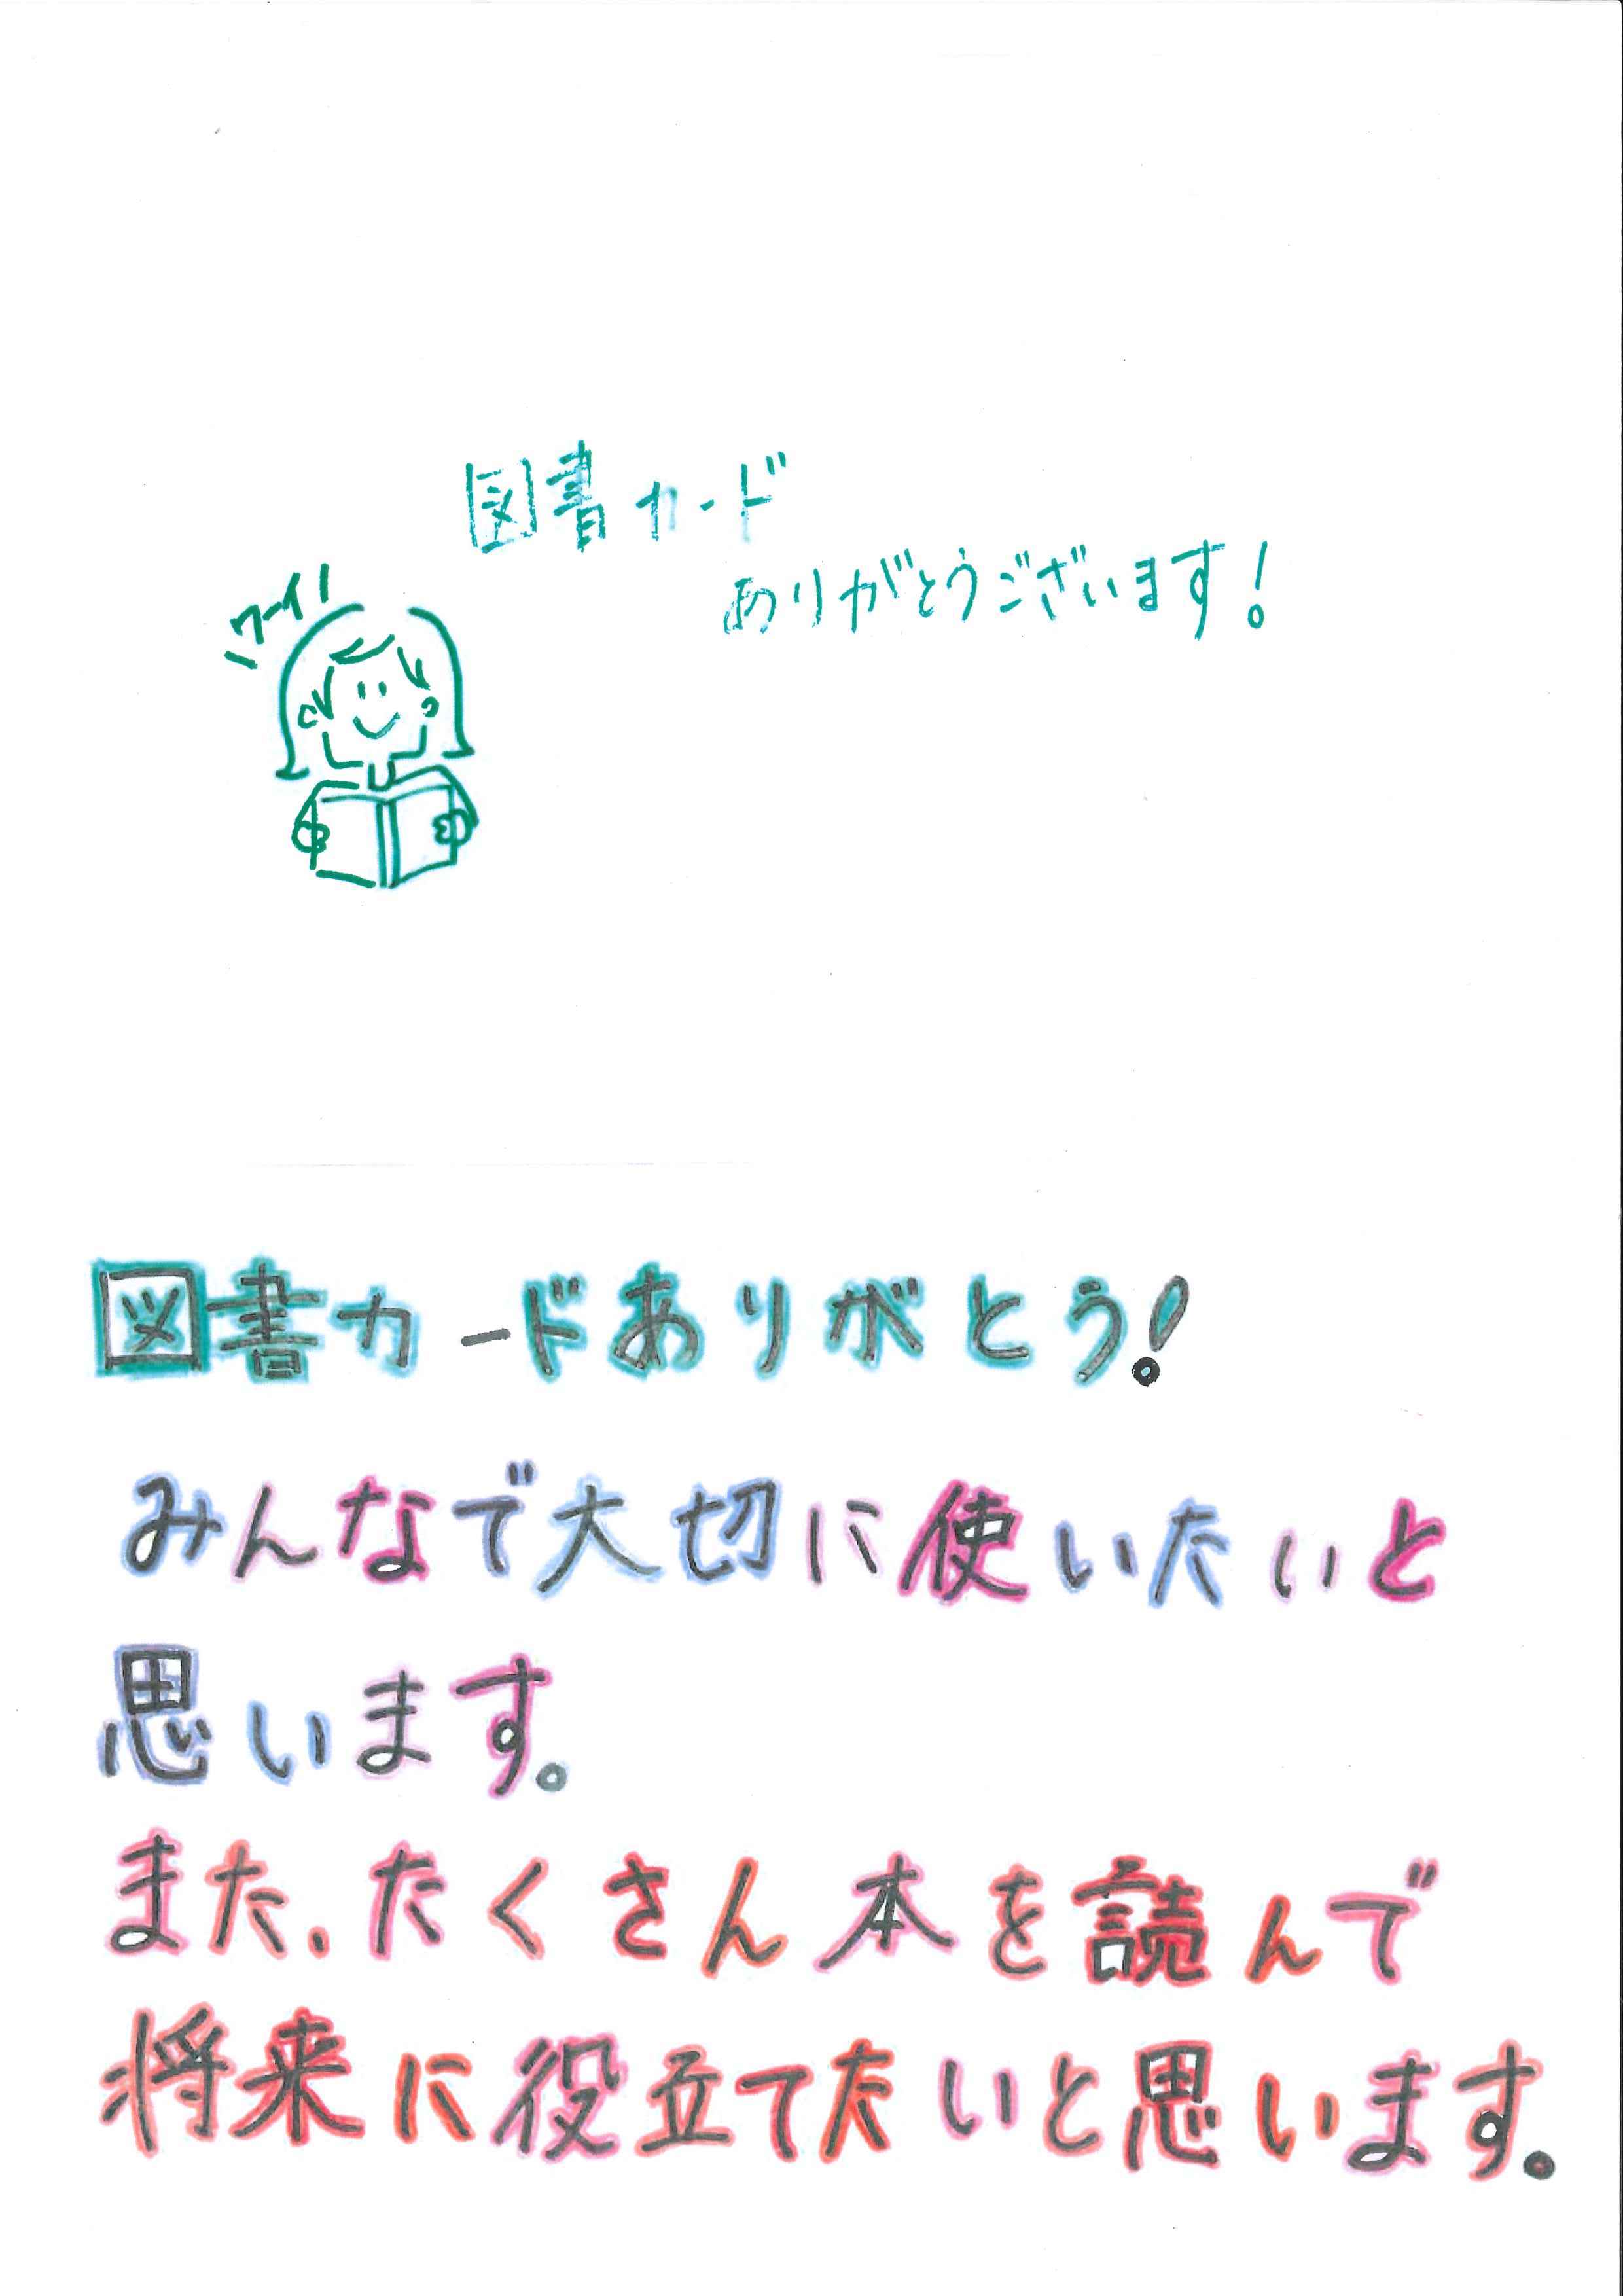 図書カード
ありがとうございます!
ワーイ!
図書カードありがとう!
みんなで大切に使いたいと
思います。
また、たくさん本を読んで
将来に役立てたいと思います。